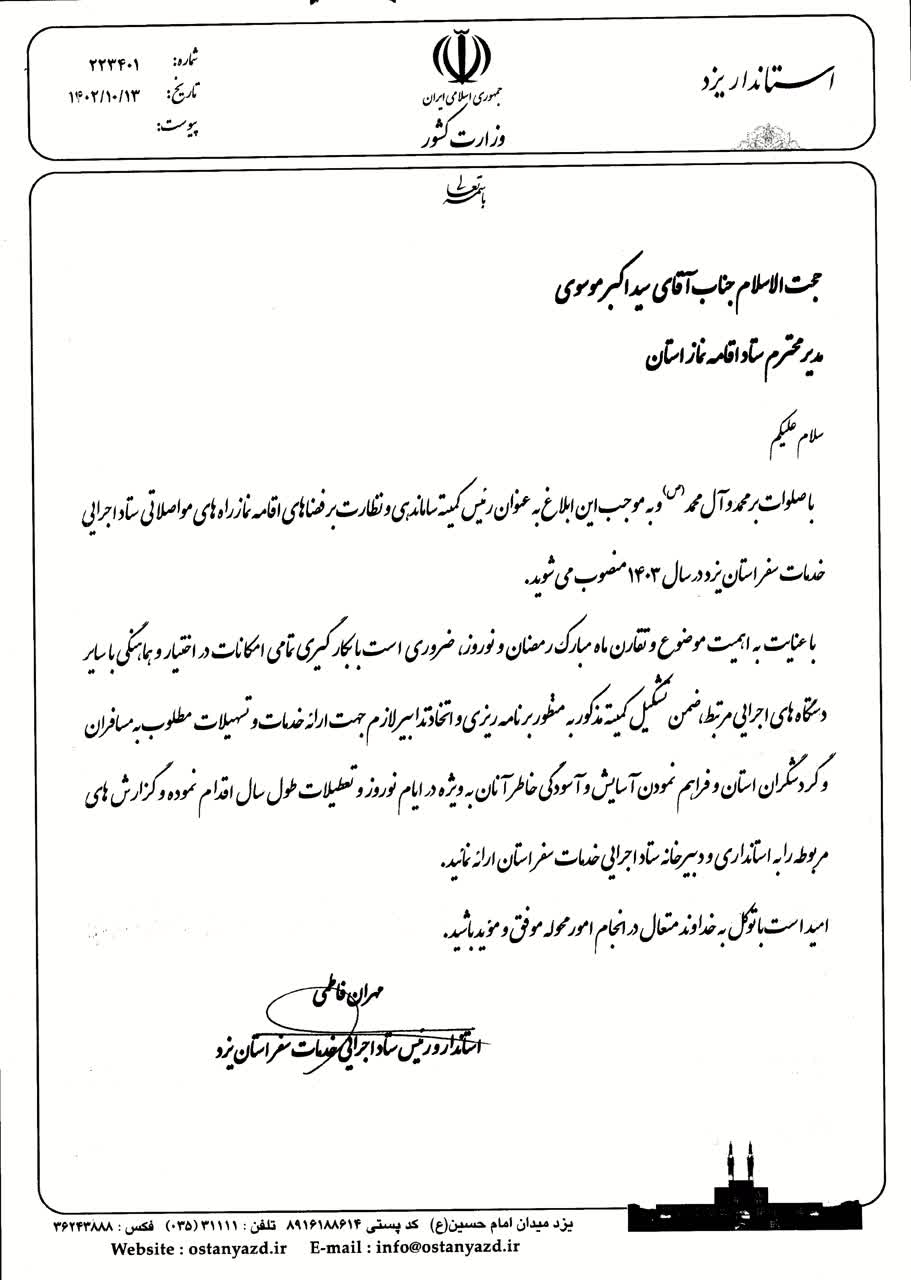 استاندار یزد
جمهوری اسلامی ایران
وزارت کشور
شماره: ۲۲۳۴۰۱
تاریخ: ۱۴۰۲/۱۰/۱۳
پیوست:
باسمه تعالی
حجت الاسلام جناب آقای سید اکبر موسوی
مدیر محترم ستاد اقامه نماز استان
سلام علیکم
با صلوات بر محمد و آل محمد (ص) و به موجب این ابلاغ به عنوان رئیس کمیته ساماندهی و نظارت بر فضاهای اقامه نماز راه های مواصلاتی ستاد اجرایی
خدمات سفر استان یزد در سال ۱۴۰۳ منصوب می شوید.
با عنایت به اهمیت موضوع و تقارن ماه مبارک رمضان و نوروز، ضروری است با بکارگیری تمامی امکانات در اختیار و هماهنگی با سایر
دستگاه های اجرایی مرتبط، ضمن تشکیل کمیته مذکور به منظور برنامه ریزی و اتخاذ تدابیر لازم جهت ارائه خدمات و تسهیلات مطلوب به مسافران
و گردشگران استان و فراهم نمودن آسایش و آسودگی خاطر آنان به ویژه در ایام نوروز و تعطیلات طول سال اقدام نموده و گزارش های
مربوطه را به استانداری و دبیرخانه ستاد اجرایی خدمات سفر استان ارائه نمائید.
امید است با توکل به خداوند متعال در انجام امور محوله موفق و مؤید باشید.
مهران فاطمی
استاندار و رئیس ستاد اجرایی خدمات سفر استان یزد
یزد میدان امام حسین(ع) کد پستی ۸۹۱۶۱۸۸۶۱۴ تلفن : ۳۱۱۱۱ (۰۳۵) فکس : ۳۶۲۴۳۸۸۸
Website : ostanyazd.ir E-mail : info@ostanyazd.ir